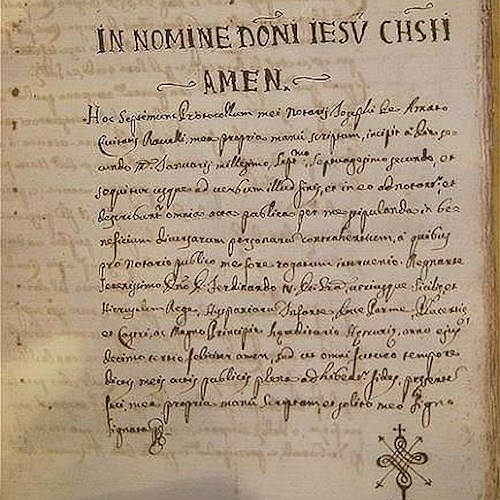 IN NOMINE DOM̄NI IESŪ CHS̄TI
AMEN.
Hoc Septimum Protocollum mei Notaris Iosephi de Amato
Civitatis Ravelli, mea propria manu scriptum, incipit a die se-
cundo M. Ianuarij millesimo, Septmo, Septuagesimo secundo, et
sequitur usque ad verbum illud finis, et in eo adnotantr, et
describuntr omnia acta publica per me stipulanda in be-
neficium diversarum personarum contrahentium, a quibus
pro Notario publico me fore rogatum intervenio. Regnante
Serenissimo Dno D. Ferdinando IV. Dei gra, utriusque Siciliæ, et
Hierusalem Rege, Hispaniarum Infante, Duce Parmæ, Placentiæ
et Castri, ac Magno Principe Hæreditario Hetruriæ, anno ejus
decimo tertio feliciter amen, sed ut omni futuro tempore
dictis meis actis publicis plena adhibeatr fides, presente
feci mea propria manu Scriptam, et solito meo Signo
Signata